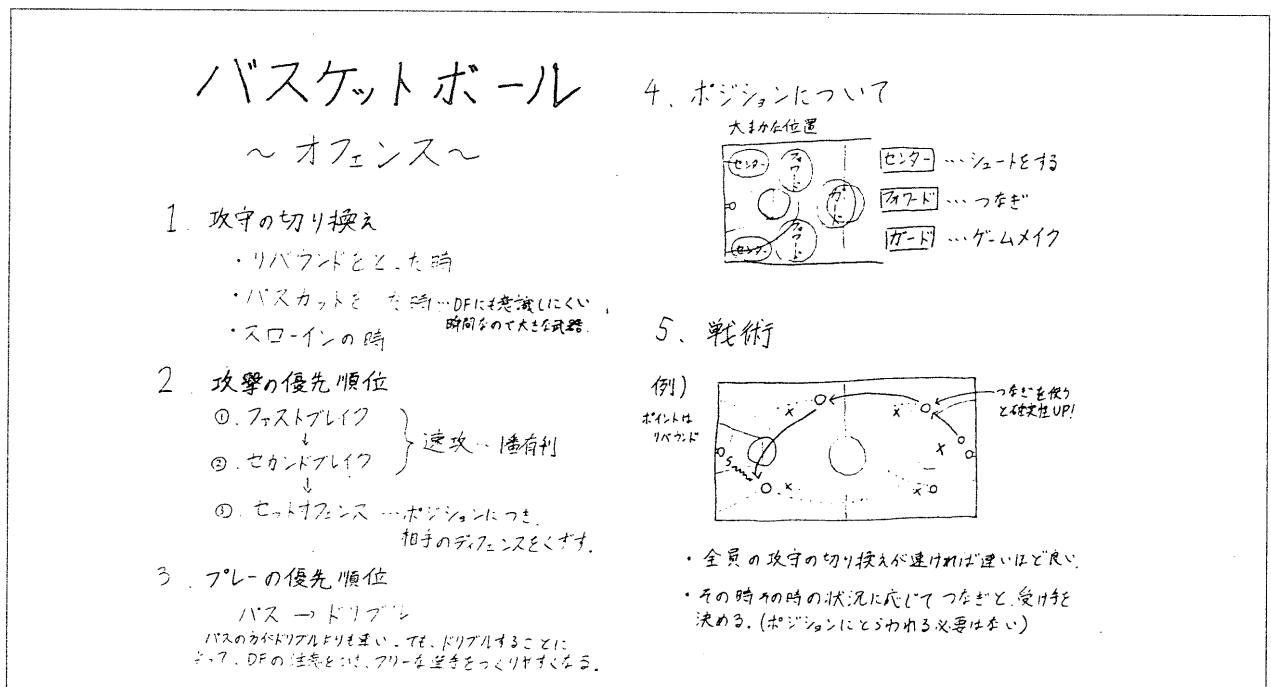 バスケットボール
～オフェンス～
1. 攻守の切り換え
・リバウンドをとった時
・パスカットをした時…DFにも意識しにくい
時間なので大きな武器.
・スローインの時
2. 攻撃の優先順位
①.ファストブレイク
↓
②.セカンドブレイク
速攻…1番有利
↓
③.セットオフェンス…ポジションにつき.
相手のディフェンスをくずす.
3. プレーの優先順位
パス → ドリブル
パスの方がドリブルよりも速い.でも、ドリブルすることに
よって、DFの注意をひき、フリーな選手をつくりやすくなる.
4. ポジションについて
大まかな位置
センター
フォワード
ガード
センター
フォワード
センター …シュートをする
フォワード …つなぎ
ガード …ゲームメイク
5. 戦術
例)
ポイントは
リバウンド
つなぎを使う
と確実性UP!
・全員の攻守の切り換えが速ければ速いほど良い.
・その時その時の状況に応じてつなぎと、受け手を
決める.(ポジションにとらわれる必要はない)